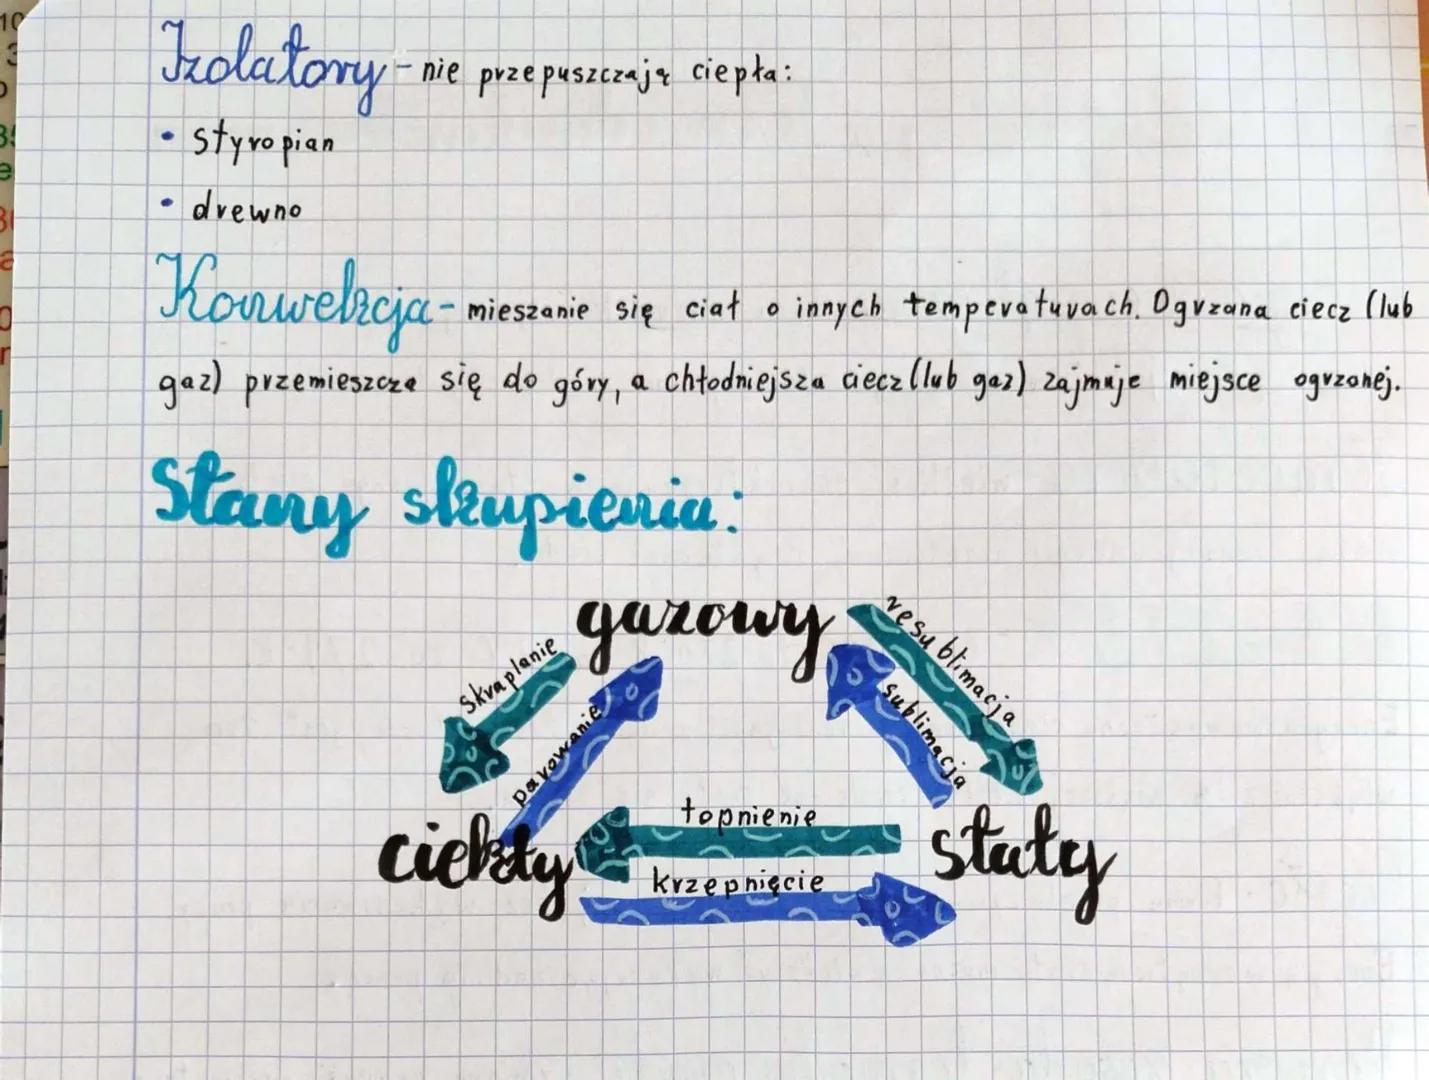 Izolatory - nie przepuszczają ciepła:
• styropian
• drewno
Konwekcja - mieszanie się ciał o innych temperaturach. Ogrzana ciecz (lub
gaz) przemieszcza się do góry, a chłodniejsza ciecz (lub gaz) zajmuje miejsce ogrzanej.
Stany skupienia:
gazowy
resublimacja
skraplanie
parowanie
sublimacja
topnienie
ciekły
stały
krzepnięcie